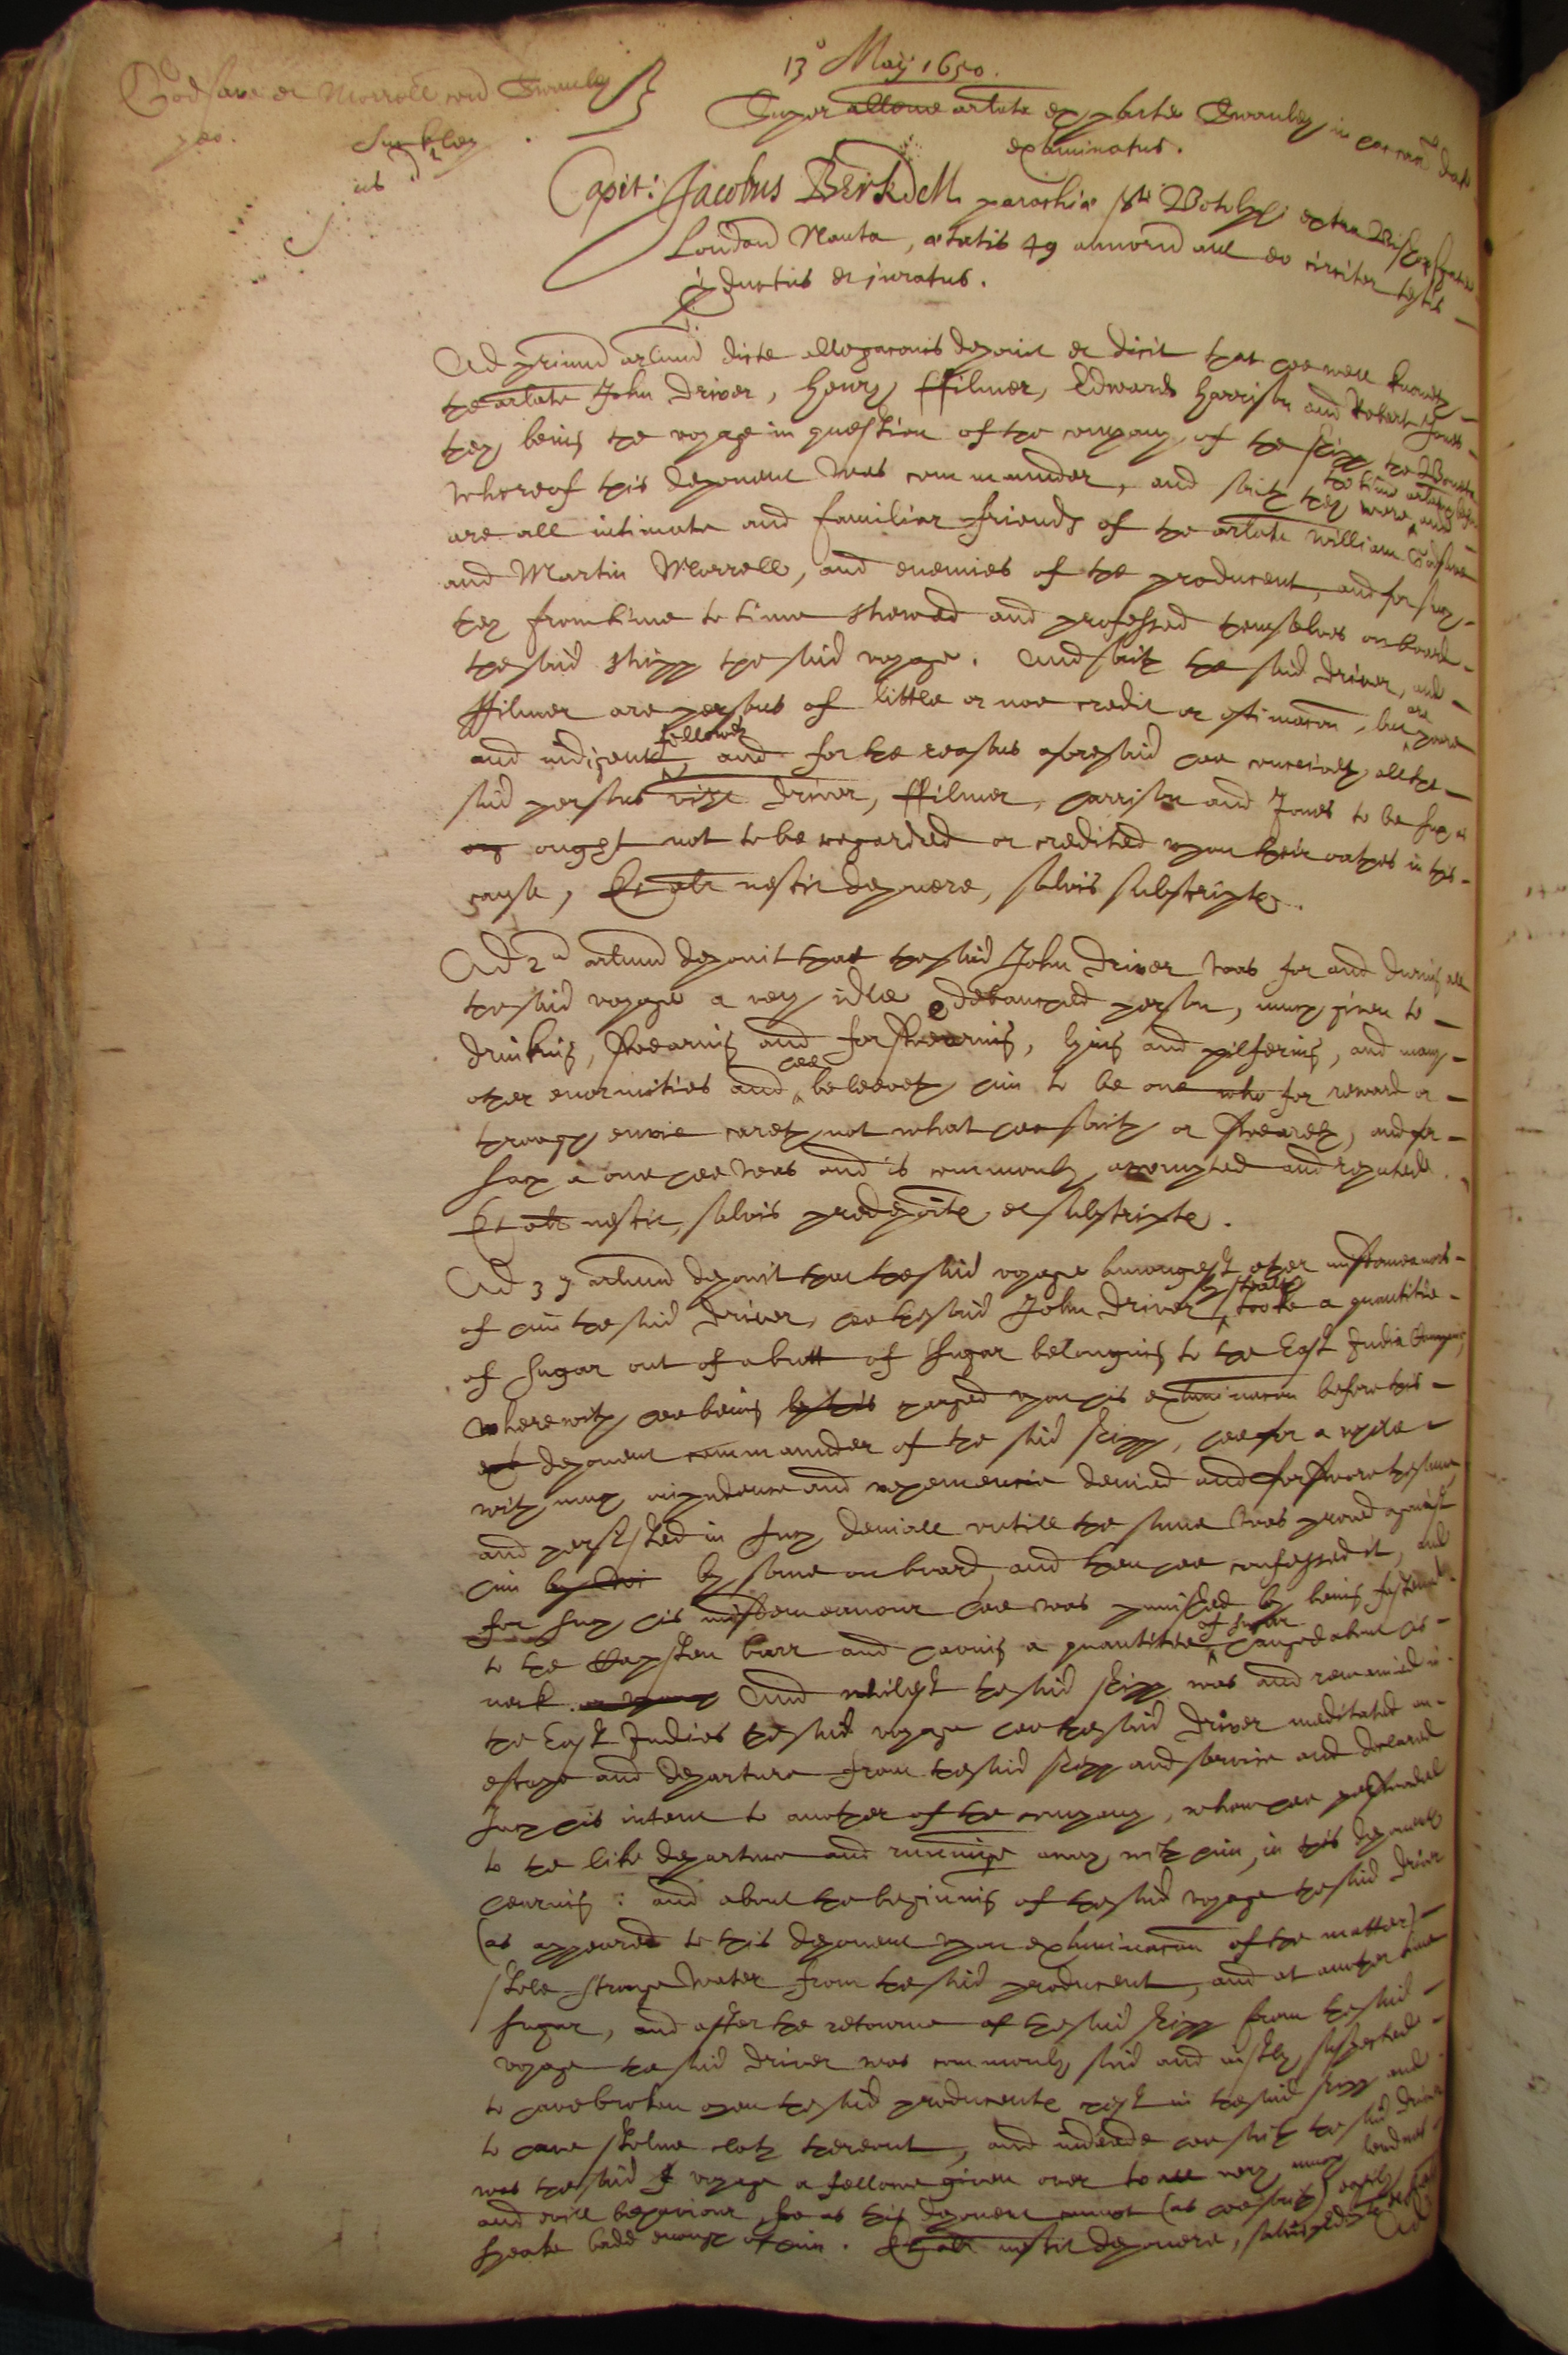 13o May 1650.
Godsave et Morrell con Swanley
Super allōne arlata ex parte Swanley in causa dat
examinatus.
Suckley
Capit: Jacobus Birkdell parochiæ Sti Botolphi extra Bishopsgate
London Nauta, ætatis 49 annorum aut eo circiter testis
productus et juratus.
Ad primum arlum dicte allegaconis deponit et dicit that hee well knoweth
the arlate John Driver, Henry ffilmer, Edward Harrison and Robert Jones
they being the voyage in question of the company of the shipp the
whereof this deponent was commaunder, and saith they were the time arlate and
are all intimate and familiar friends of the arlate William Godsave
and Martin Morrell, and enemies of the producent, and for such
they from time to time shewed and professed themselves on board
the said shipp the said voyage. And saith the said Driver, and
ffilmer are persons of little or noe credit or estimacon, but are poore
and indigent fellowes, and for the reasons aforesaid hee conceiveth all the
said persons vizt Driver, ffilmer, Harrison and Jones to be such as
ought not to be regarded or credited upon their oathes in this
cause, Et alr nescit deponere, salvis subscriptis.
Ad 2um arlum deponit that the said John Driver was for and during all
the said voyage a very idle debauched person, much given to
drinking, swearing and forswearing, lying and pilfering, and many
other enormities and hee beleeveth him to be one who for reward or
through envie careth not what hee saith or sweareth, and for
such a one hee was and is commonly accompted and reputed.
Et alr nescit, salvis predepoitis et subscriptis.
Ad 3 arlum deponit that the said voyage amongst other misdemeanors
of him the said Driver, hee the said John Driver by stealth tooke a quantitie
of sugar out of a butt of sugar belonging to the East India Company,
wherewith hee being by this charged upon his examinacon before this
deponent commaunder of the said shipp, hee for a while
with much impudence and vehemencie denied and forswore the same
and persisted in such deniall untill the same was proved against
him by some on board, and then hee confessed it, and
for such his misdemeanour hee was punished by being fastened
to the Capsten barr and having a quantitie of sugar hanged about his
neck. And whilest the said shipp was and remained in
the East Indies the said voyage hee the said Driver meditated an
escape and departure from the said shipp and service and declared
such his intent to another of the company, whom hee perswaded
to the like departure and running away with him, in this deponents
hearing: and about the beginning of the said voyage the said Driver
(as appeared to this deponent upon examinacon of the matter)
stole stronge water from the said producent, and at another time
sugar, and after the retourne of the said shipp from the said
voyage the said Driver was commonly said and justly suspected
to have broken open the said producents chest in the said shipp and
to have stolne cloth thereout, and indeede hee saith the said Driver
was the said voyage a fellowe given over to very much lewdnes
and evill behaviour, soe as this deponent cannot (as hee saith) easily
speake badd enough of him. Et alr nescit deponere, salvis
Ad